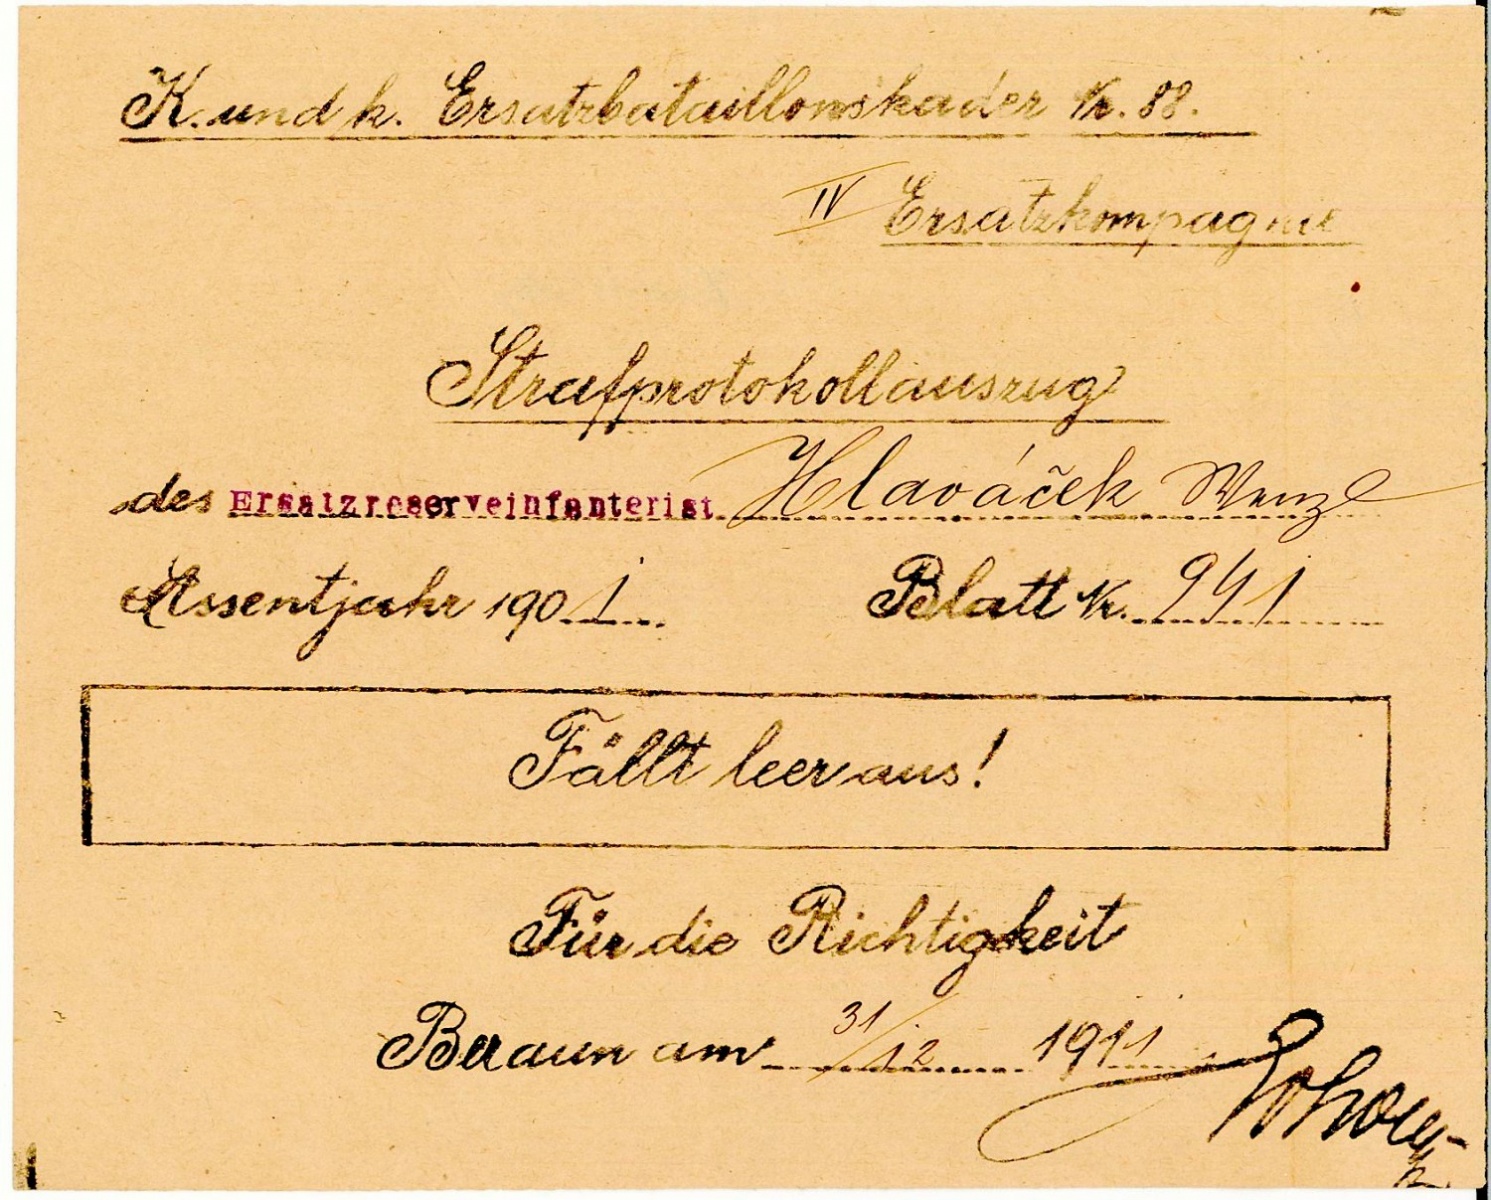 K. und k. Ersatzbataillonskader Nr. 88.
IV Ersatzkompagnie
Strafprotokollauszug
des Ersatzreserveinfanterist Hlaváček Wenzl
Assentjahr 1901 Blatt Nr. 941
Fällt leer aus!
Für die Richtigkeit
Beraun am 31/12 1911